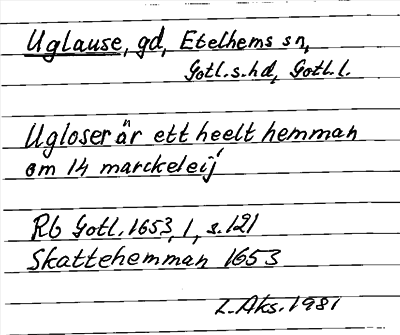 Uglause, gd, Etelhems sn,
Gotl.s.hd, Gotl.l.
Ugloser är ett heelt hemman
om 14 marckeleij
Rb Gotl. 1653, 1, s. 121
Skattehemman 1653
L. Aks. 1981